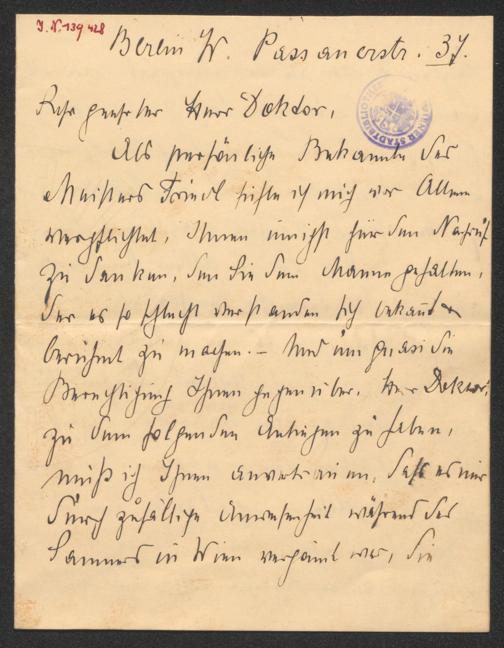 J.N. 139428
Berlin W. Passauerstr. 37.
Sehr geehrter Herr Doktor,
Als persönliche Bekannte des
Meisters Friedl fühle ich mich vor Allem
verpflichtet, Ihnen innigst für den Nachruf
zu danken, den Sie dem Manne gehalten,
der es so schlecht verstanden sich bekannt &
berühmt zu machen. – Und um quasi die
Berechtigung Ihnen gegenüber, Herr Doktor,
zu dem folgenden Anliegen zu haben,
muß ich Ihnen anvertrauen, daß es mir
durch zufällige Anwesenheit während des
Sommers in Wien vergönnt war, Sie